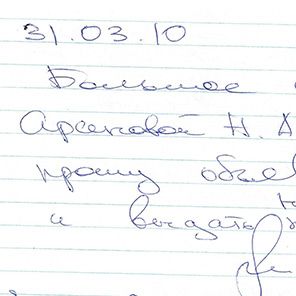 31.03.10
Большое
Арсеновой Н. А
прошу объе
и выдать